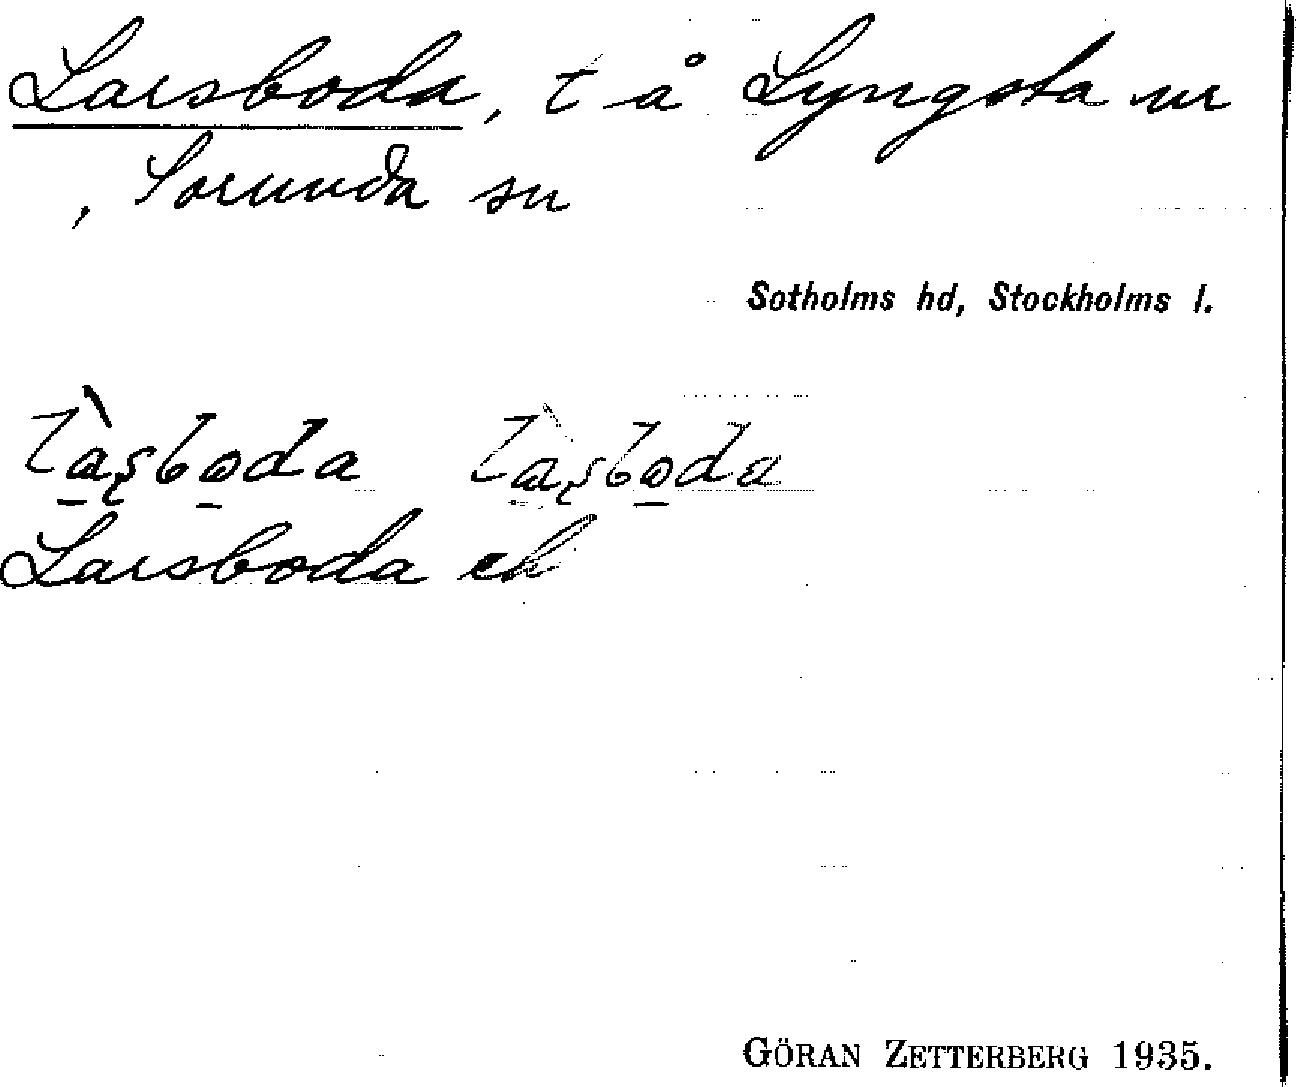 Larsboda, t å Lyngsta nr
, Sorunda sn
Sotholms hd, Stockholms l.
Larsboda ek
GÖRAN ZETTERBERG 1935.